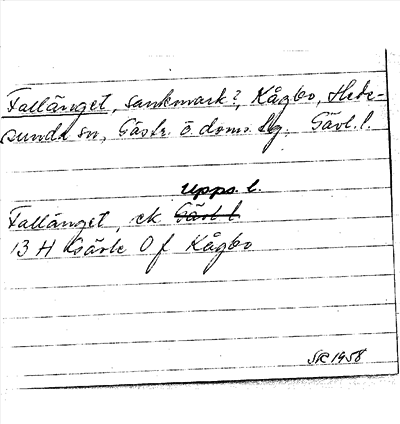 Fallänget, sankmark?, Kågbo, Hede-
sunda sn, Gästr. ö. doms. hg. Gävl. l.
Upps. l.
Fallänget, ek Gävl l
13 H Gävle O f Kågbo
SR 1958